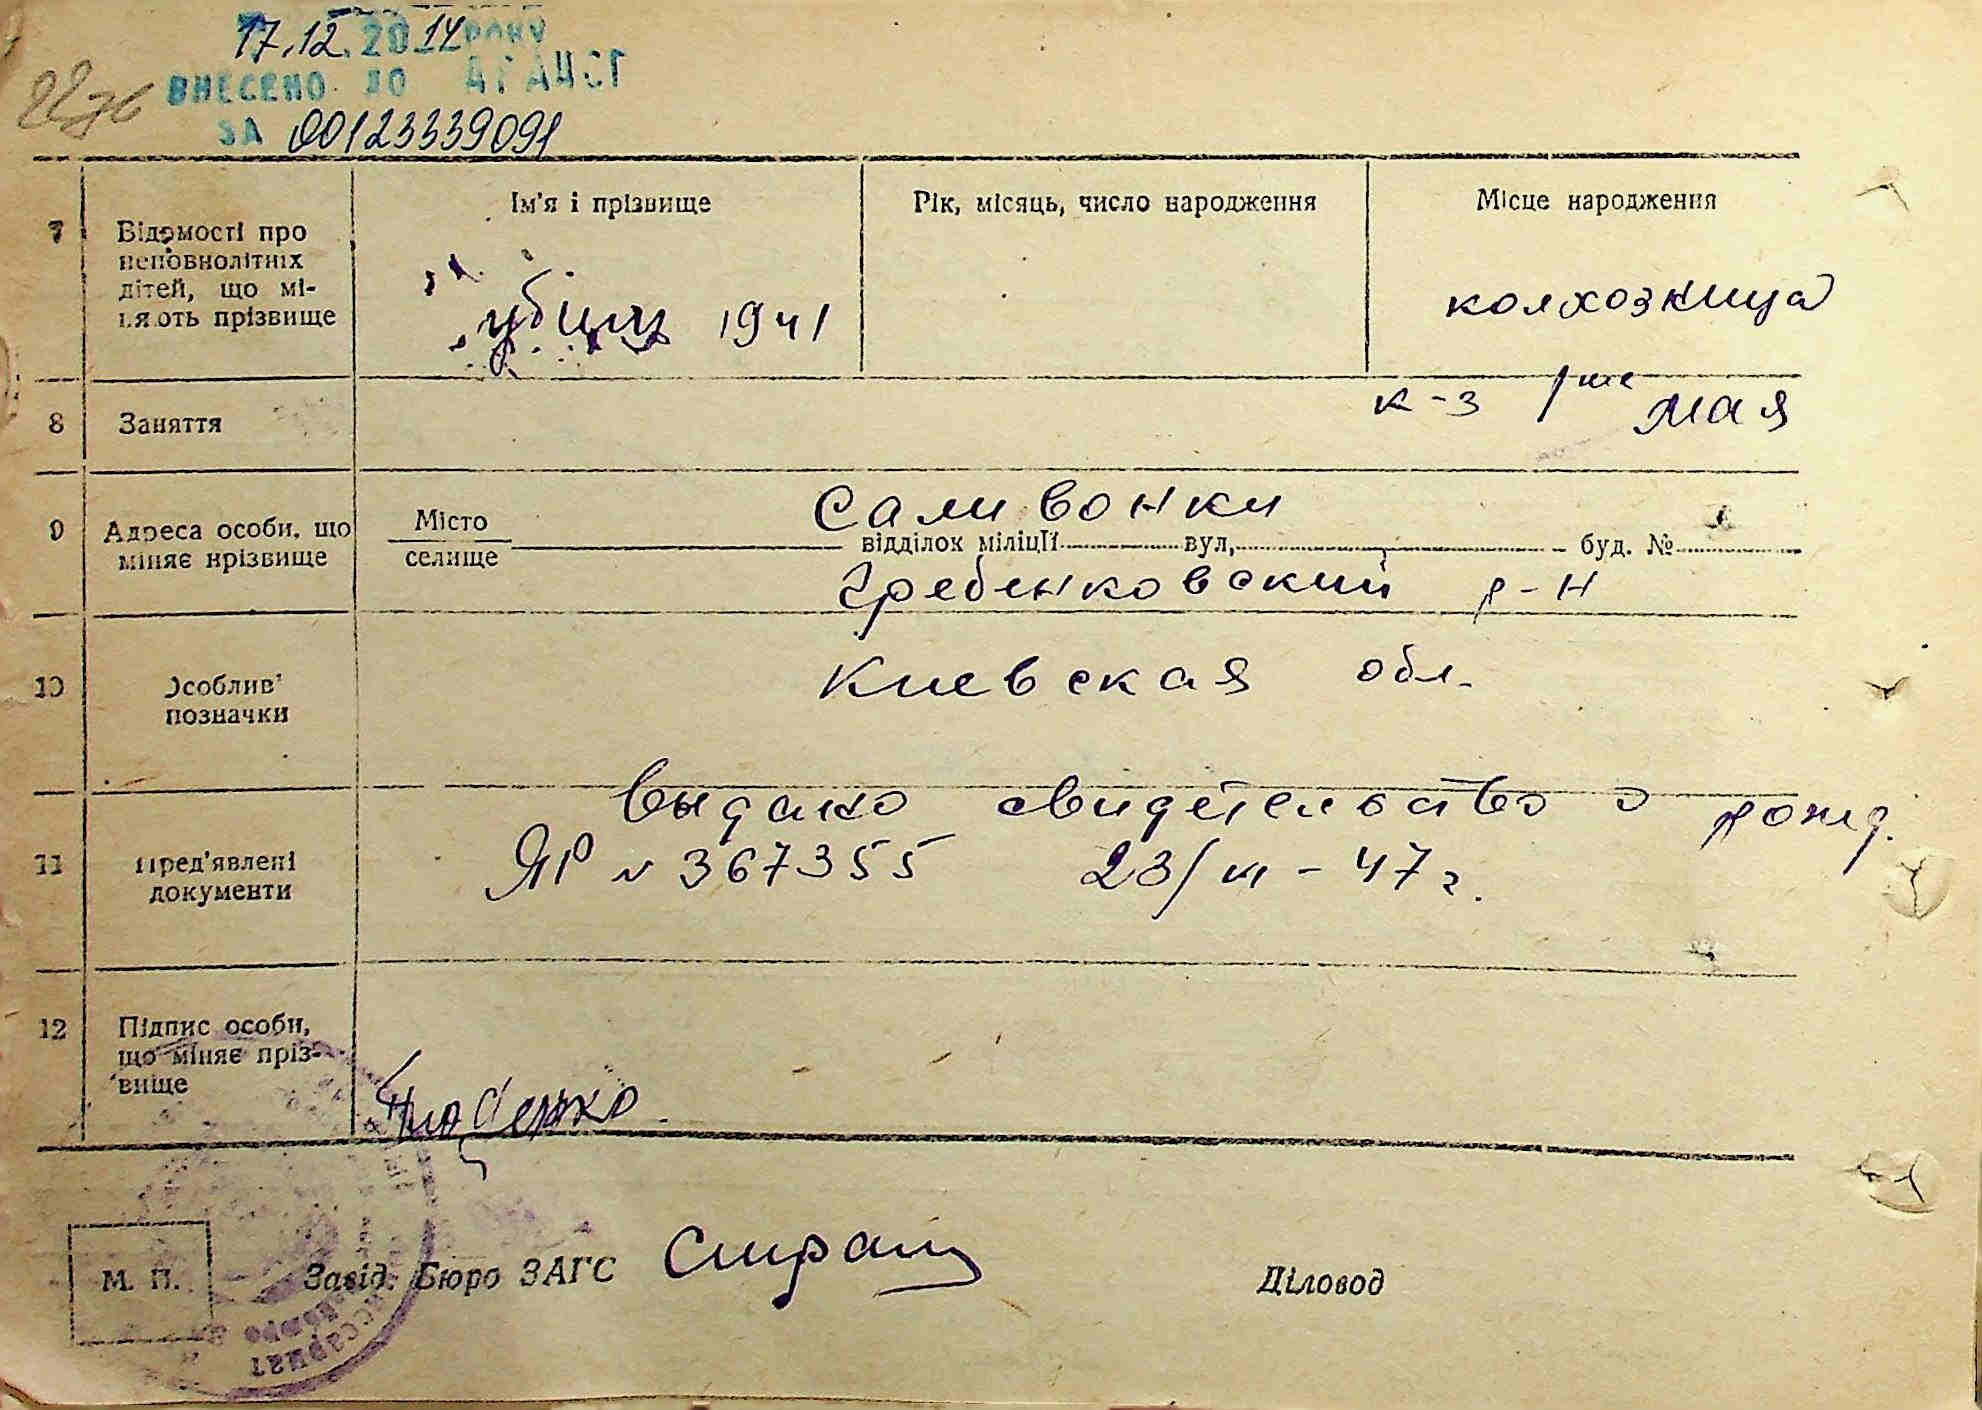 17.12.2014 року
ВНЕСЕНО ДО ДРАЦСГ
ЗА 00123339091
Ім'я і прізвище
Рік, місяць, число народження
Місце народження
7
Відомості про
неповнолітніх
дітей, що мі-
няють прізвище
убит 1941
колхозница
8
Заняття
к-з 1ше мая
9
Адреса особи, що
міняє прізвище
Місто
селище
Саливонки
відділок міліції вул, буд. №
Гребенковский р-н
10
Особливі
позначки
Киевская обл.
11
Пред'явлені
документи
Выдано свидетельство о рожд.
ЯР № 367355 23/VI - 47 г.
12
Підпис особи,
що міняє пріз-
вище
М. П.
Завід. Бюро ЗАГС
Діловод